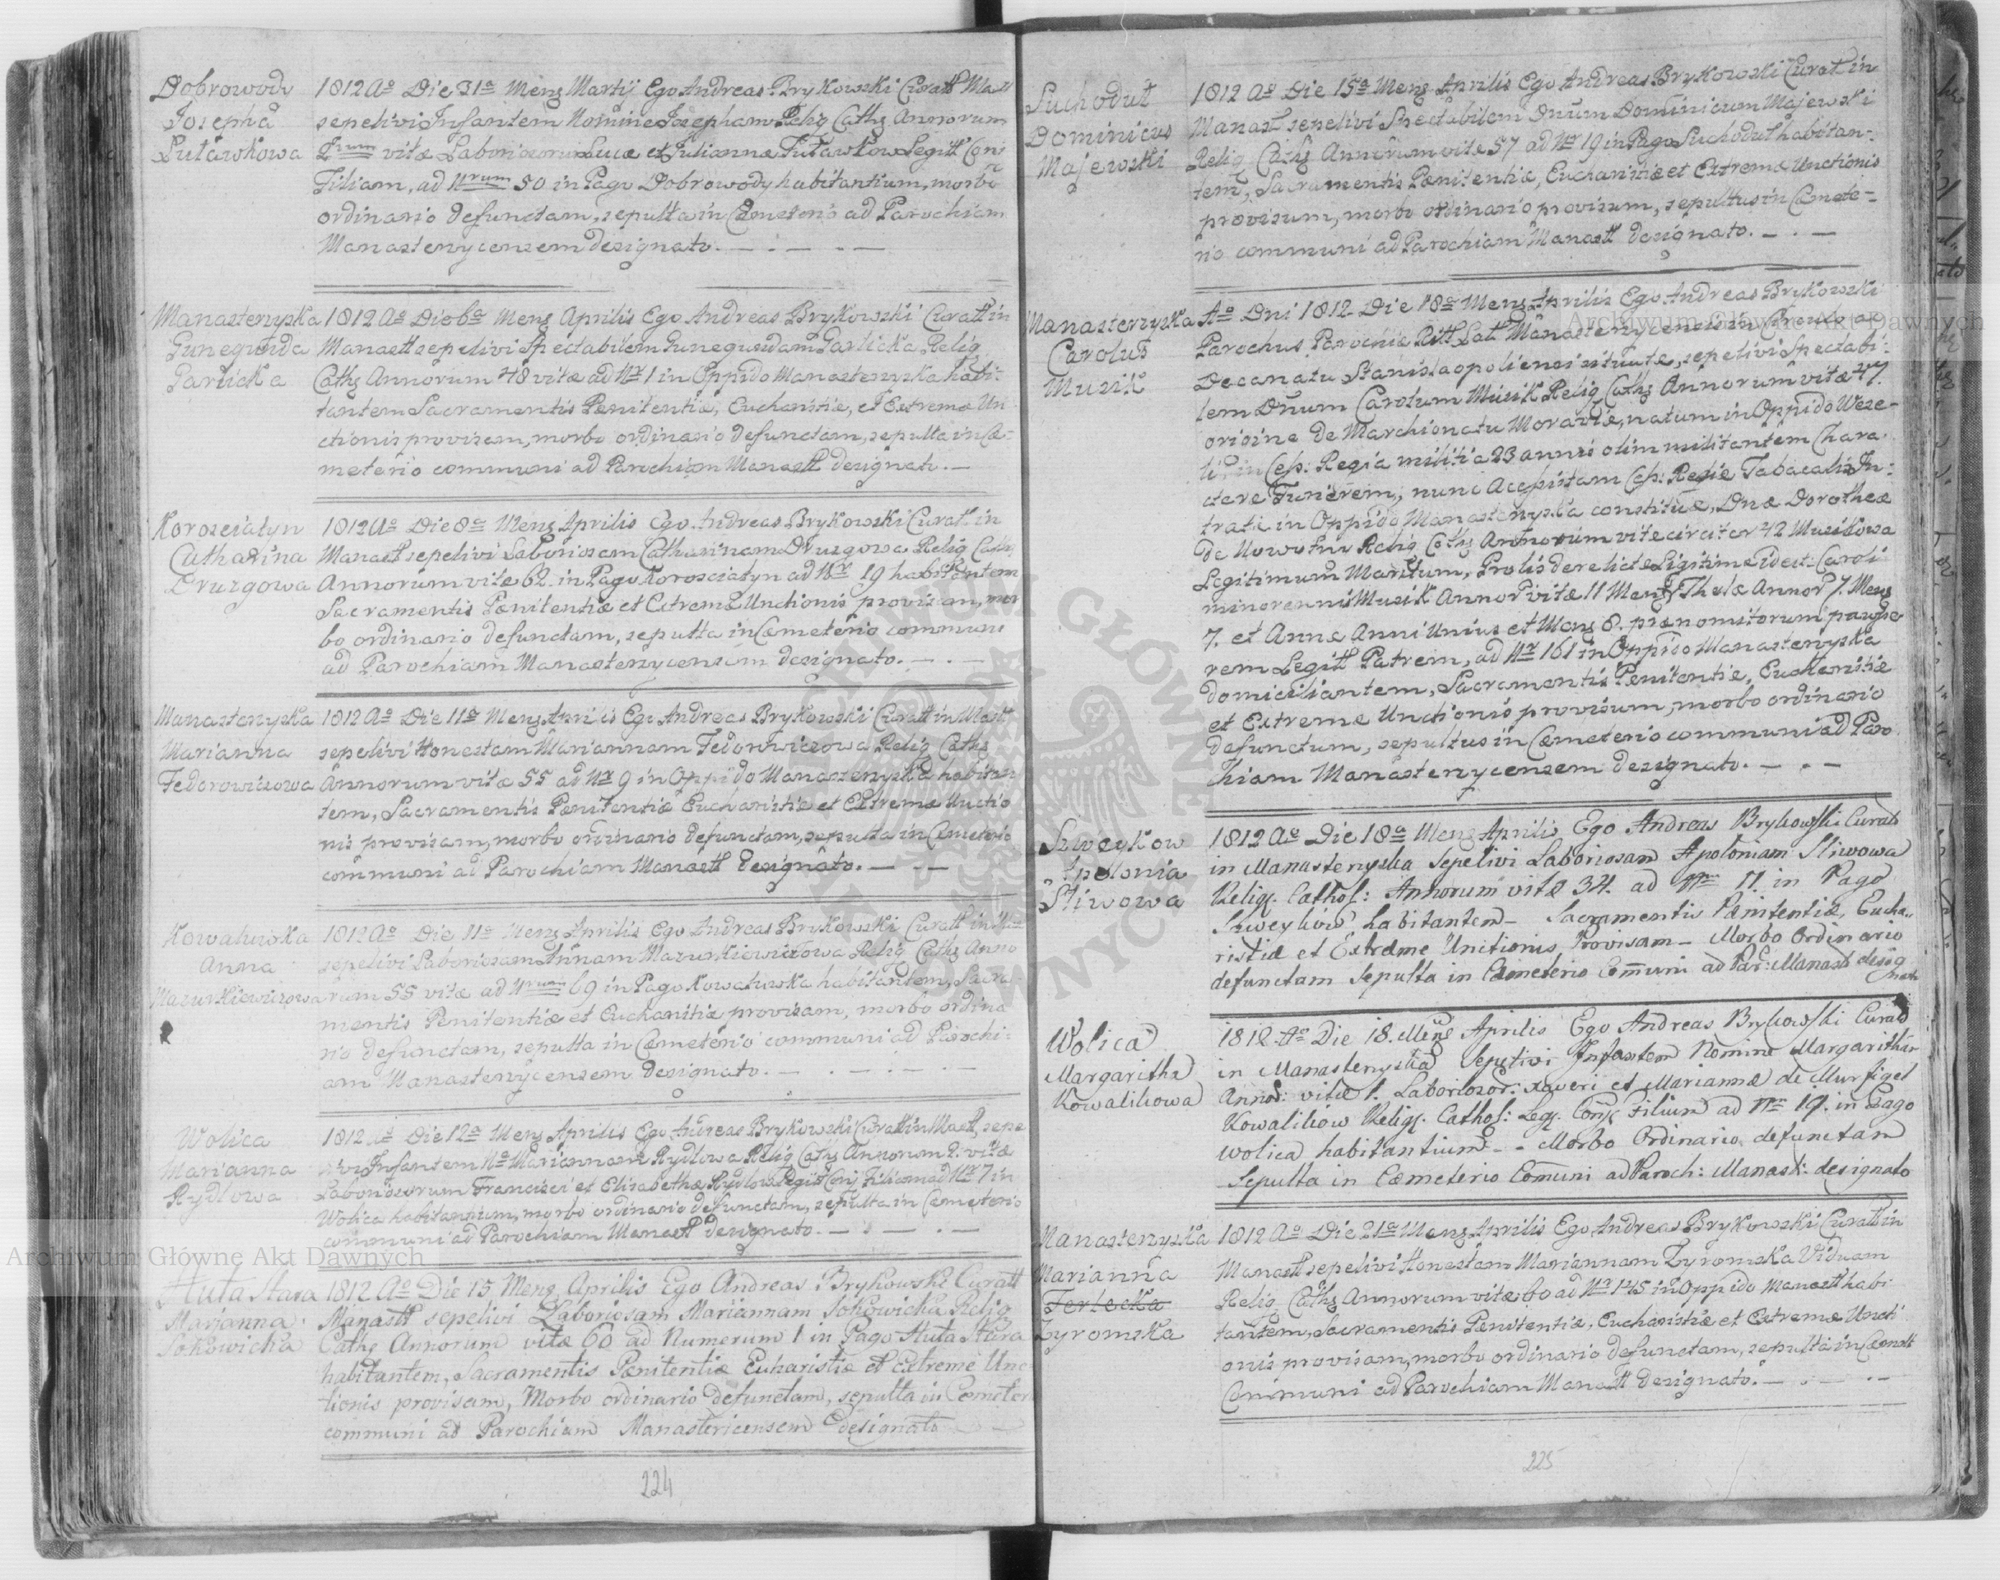 Dobrowody
Josepha
Putawkowa
1812 Ao Die 31a Mens Martij Ego Andreas Brykowski Curatt Mast
sepelivi Infantem Nomine Josepham Relig Caths Annorum
2rum vitæ Laboriosorum Lucæ et Juliannæ Legitt Con
Filiam, ad Nrum 50 in Pago Dobrowody habitantium, morbo
ordinario defunctam, sepulta in Cæmeterio ad Parochiam
Manasterzycensem designato. — · — · —
Manasterzyska
Cunegunda
Garlicka
1812 Ao Die 6a Mens Aprilis Ego Andreas Brykowski Curatt in
Manastt sepelivi Spectabilem Cunegundam Garlicka Relig
Caths Annorum 48 vitæ ad Nr 1 in Oppido Manasterzyska habi-
tantem Sacramentis Pænitentiæ, Eucharistiæ, et Extremæ Un
ctionis provisam, morbo ordinario defunctam, sepulta in Cæ-
meterio communi ad Parochiam Manastt designato. —
Korosciatyn
Catharina
Druzgowa
1812 Ao Die 8a Mens Aprilis Ego Andreas Brykowski Curatt in
Manastt sepelivi Laboriosam Catharinam Druzgowa Relig Caths
Annorum vitæ 62 in Pago Korosciatyn ad Nr 19 habitantem
Sacramentis Pænitentiæ et Extremæ Unctionis provisam, mor
bo ordinario defunctam, sepulta in Cæmeterio communi
ad Parochiam Manasterzycensem designato. — · —
Manasterzyska
Marianna
Fedorowiczowa
1812 Ao Die 11a Mens Aprilis Ego Andreas Brykowski Curatt in Mastt
sepelivi Honestam Mariannam Fedorowiczowa Relig Caths
Annorum vitæ 55 ad Nr 9 in Oppido Manasterzyska habitan
tem, Sacramentis Pænitentiæ Eucharistiæ et Extremæ Unctio
nis provisam, morbo ordinario defunctam, sepulta in Cæmeterio
communi ad Parochiam Manastt designato. — · —
Kowaluwka
Anna
Mazurkiewiczowa
1812 Ao Die 11a Mens Aprilis Ego Andreas Brykowski Curatt in
sepelivi Laboriosam Annam Mazurkiewiczowa Relig Caths Anno
rum 55 vitæ ad Nrum 69 in Pago Kowaluwka habitantem, Sacra
mentis Pænitentiæ et Eucharistiæ provisam, morbo ordina
rio defunctam, sepulta in Cæmeterio communi ad Parochi-
am Manasterzycensem designato. — · — · —
Wolica
Marianna
Rydlowa
1812 Ao Die 12a Mens Aprilis Ego Andreas Brykowski Curatt in Mastt sepe
livi Infantem No Mariannam Rydlowa Relig Caths Annorum 2. vitæ
Laboriosorum Francisci et Elisabethæ Rydlow Legitt Conj Filiam ad Nr 7 in
Wolica habitantium, morbo ordinario defunctam, sepulta in Cæmeterio
communi ad Parochiam Manastt designato. — · — · —
Huta Stara
Marianna
Sokowicka
1812 Ao Die 15 Mens Aprilis Ego Andreas Brykowski Curatt
Manastt sepelivi Laboriosam Mariannam Sokowicka Relig
Caths Annorum vitæ 60 ad Numerum 1 in Pago Huta Stara
habitantem, Sacramentis Pænitentiæ Eucharistiæ et Extreme Unc
tionis provisam, Morbo ordinario defunctam, sepulta in Cæmeter
communi ad Parochiam Manastericensem designato
224
Suchodul
Dominicus
Majewski
1812 Ao Die 15a Mens Aprilis Ego Andreas Brykowski Curatt in
Manastt sepelivi Spectabilem Dnum Dominicum Majewski
Relig Caths Annorum vitæ 57 ad Nr 19 in Pago Suchodul habitan-
tem, Sacramentis Pænitentiæ, Eucharistiæ et Extremæ Unctionis
provisum, morbo ordinario provisum, sepultus in Cæmete-
rio communi ad Parochiam Manastt designato. — · —
Manasterzyska
Carolus
Musik
Ao Dni 1812 Die 18a Mens Aprilis Ego Andreas Brykowski
Parochus Parochiæ Ritt Latt Manasterzycensis in Circulo ac
Decanatu Stanislaopoliensi situatæ, sepelivi Spectabi-
lem Dnum Carolum Musik Relig Caths Annorum vitæ 47.
origine de Marchionatu Moraviæ, natum in Oppido Wese-
li, in Ces: Regia militia 23 annis olim militantem Chara
ctere Funerem, nunc Ces: Regiæ Tabacalis In-
trati in Oppido Manasterzyska constitutæ, Dnæ Dorotheæ
de Nowotny Relig Caths Annorum vitæ circiter 42 Musikowa
Legitimum Maritum, Prolis derelictæ Ligitimæ id est: Caroli
minorennis Musik Annor vitæ 11 Mens Theklæ Annor 7. Mens
7. et Annæ Anni Unius et Mens 6. prænomitorum
rem Legitt Patrem, ad Nr 161 in Oppido Manasterzyska
domiciliantem, Sacramentis Pænitentiæ, Eucharistiæ
et Extremæ Unctionis provisum, morbo ordinario
defunctum, sepultus in Cæmeterio communi ad Paro
chiam Manasterzycensem designato. — · —
Szweykow
Apolonia
Sliwowa
1812 Ao Die 18a Mens Aprilis Ego Andreas Brykowski Curatt
in Manasterzyska Sepelivi Laboriosam Apoloniam Sliwowa
Relig. Cathol: Annorum vitæ 34. ad Nrm 11. in Pago
Szweykow habitantem — Sacramentis Pænitentiæ, Eucha-
ristiæ et Extreme Unctionis Provisam — Morbo Ordinario
defunctam Sepulta in Cæmeterio Comuni ad Par: Manast desig
nato
Wolica
Margaritha
Kowalikowa
1812 Ao Die 18. Mens Aprilis Ego Andreas Brykowski Curatt
in Manasterzyska Sepelivi Infantem Nomine Margaritham
Annor: vitæ 1. Laboriosor: Xaveri et Mariannæ de Murfigel
Kowalikow Religs. Cathol: Leg. Conj: Filium ad Nrm 19. in Pago
Wolica habitantium — — Morbo Ordinario defunctam
Sepulta in Cæmeterio Comuni ad Paroch: Manast: designato
Manasterzyska
Marianna
Terlecka
Zyromska
1812 Ao Die 21a Mens Aprilis Ego Andreas Brykowski Curatt in
Manastt sepelivi Honestam Mariannam Zyromska Viduam
Relig Caths Annorum vitæ 60 ad Nr 145 in Oppido Manastt habi
tantem, Sacramentis Pænitentiæ, Eucharistiæ et Extremæ Uncti
onis provisam, morbo ordinario defunctam, sepulta in Cæmett
Communi ad Parochiam Manastt designato. — · — · —
225
Archiwum Główne Akt Dawnych
Archiwum Główne Akt Dawnych
ARCHIWUM GŁÓWNE AKT DAWNYCH